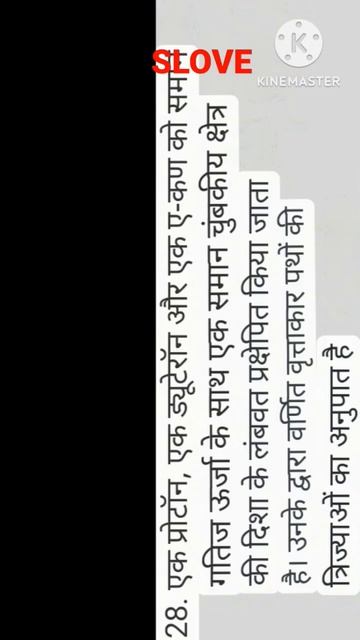 SLOVE
KINEMASTER
28. एक प्रोटॉन, एक ड्यूटेरॉन और एक ए-कण को समान
गतिज ऊर्जा के साथ एक समान चुंबकीय क्षेत्र
की दिशा के लंबवत प्रक्षेपित किया जाता
है। उनके द्वारा वर्णित वृत्ताकार पथों की
त्रिज्याओं का अनुपात है